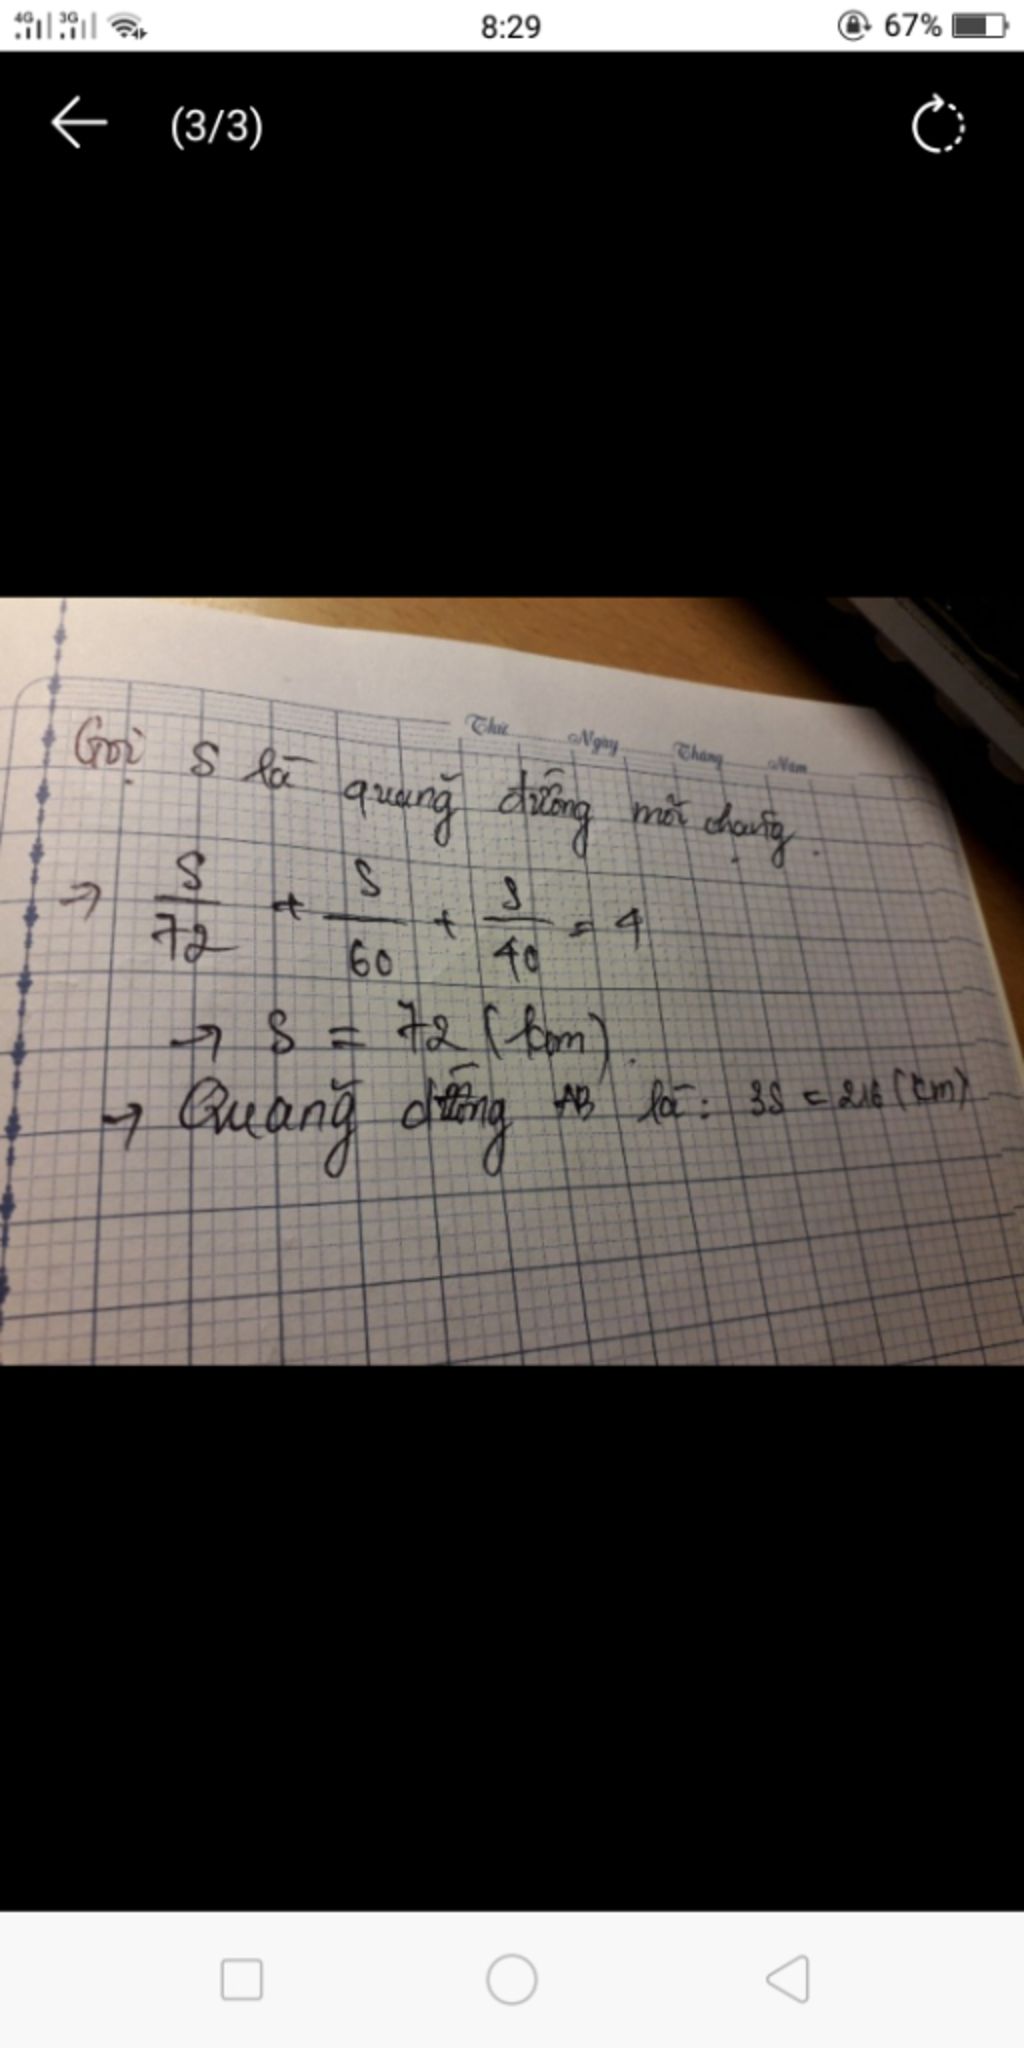 4G 3G 8:29 67%
(3/3)
Thứ Ngày Tháng Năm
Gọi S là quãng đường mỗi chặng.
→ S/72 + S/60 + S/40 = 4
→ S = 72 (km).
→ Quãng đường AB là: 3S = 216 (km)